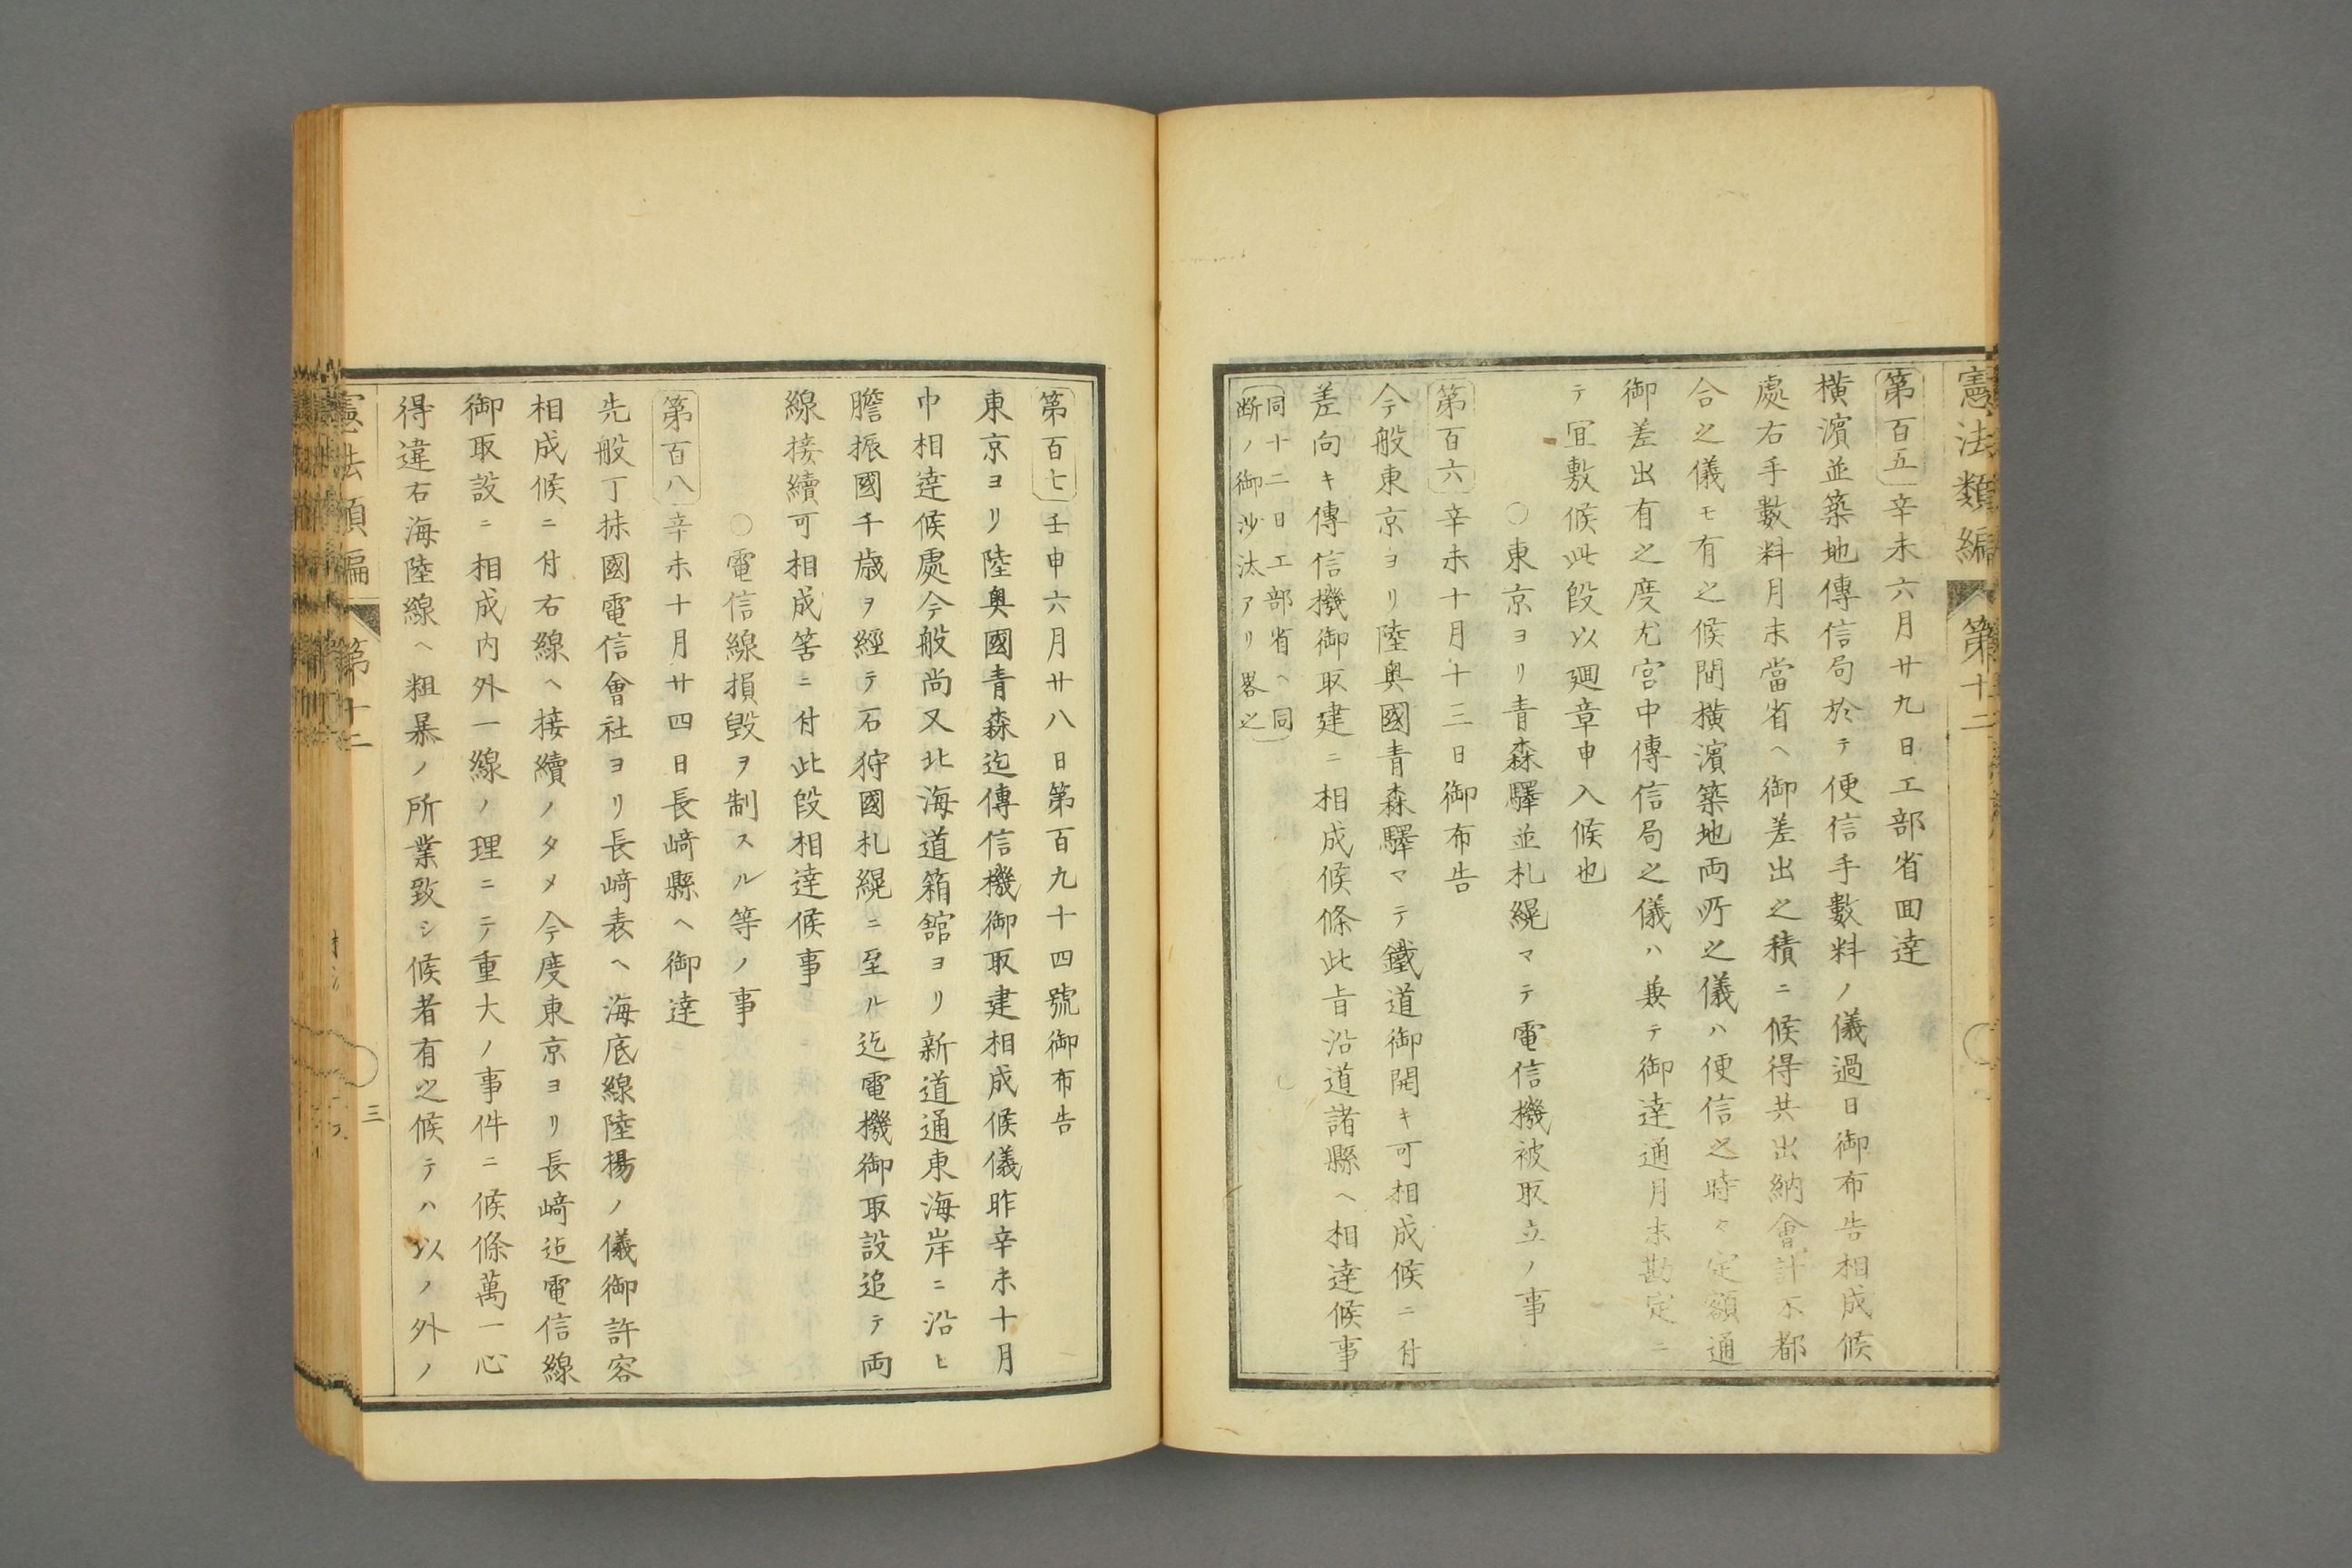 憲法類編 第十二
第百五 辛未六月廿九日工部省囬達
横濱並築地傳信局於テ便信手數料ノ儀過日御布告相成候
處右手數料月末當省ヘ御差出之積ニ候得共出納會計不都
合之儀モ有之候間横濱築地両所之儀ハ便信之時々定額通
御差出有之度尤宮中傳信局之儀ハ兼テ御達通月末勘定ニ
テ宜敷候此段以廻章申入候也
○東京ヨリ青森驛並札幌マテ電信機被取立ノ事
第百六 辛未十月十三日御布告
今般東京ヨリ陸奥國青森驛マテ鐵道御開キ可相成候ニ付
差向キ傳信機御取建ニ相成候條此旨沿道諸縣ヘ相達候事
同十二日工部省ヘ同
断ノ御沙汰アリ畧之
第百七 壬申六月廿八日第百九十四號御布告
東京ヨリ陸奥國青森迄傳信機御取建相成候儀昨辛未十月
中相達候處今般尚又北海道箱舘ヨリ新道通東海岸ニ沿ヒ
膽振國千歳ヲ經テ石狩國札幌ニ至ル迄電機御取設追テ両
線接續可相成筈ニ付此段相達候事
○電信線損毀ヲ制スル等ノ事
第百八 辛未十月廿四日長崎縣ヘ御達
先般丁抹國電信會社ヨリ長崎表ヘ海底線陸揚ノ儀御許容
相成候ニ付右線ヘ接續ノタメ今度東京ヨリ長崎迄電信線
御取設ニ相成内外一線ノ理ニテ重大ノ事件ニ候條萬一心
得違右海陸線ヘ粗暴ノ所業致シ候者有之候テハ以ノ外ノ
憲法類編 第十二
三